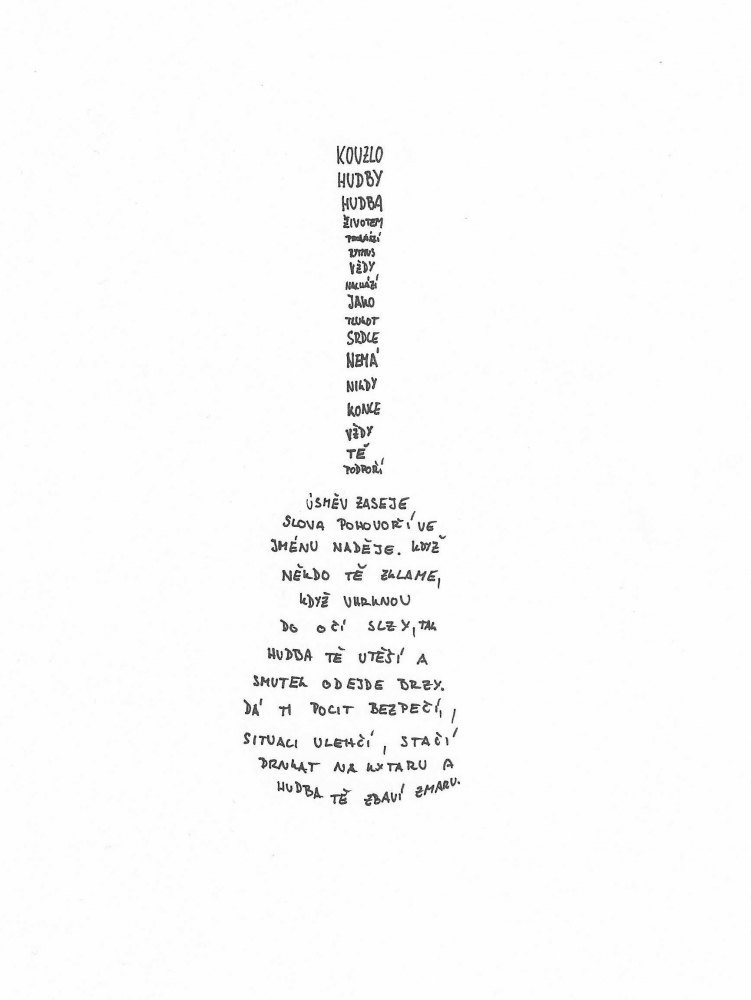 KOUZLO
HUDBY
HUDBA
ŽIVOTEM
PROVÁZÍ
RYTMUS
VŽDY
NACHÁZÍ
JAKO
TLUKOT
SRDCE
NEMÁ
NIKDY
KONCE
VŽDY
TĚ
PODPOŘÍ
ÚSMĚV ZASEJE
SLOVA POHOVOŘÍ VE
JMÉNU NADĚJE. KDYŽ
NĚKDO TĚ ZKLAME,
KDYŽ VHRKNOU
DO OČÍ SLZY, TAK
HUDBA TĚ UTĚŠÍ A
SMUTEK ODEJDE BRZY.
DÁ TI POCIT BEZPEČÍ, ,
SITUACI ULEHČÍ, STAČÍ
DRNKAT NA KYTARU A
HUDBA TĚ ZBAVÍ ZMARU.